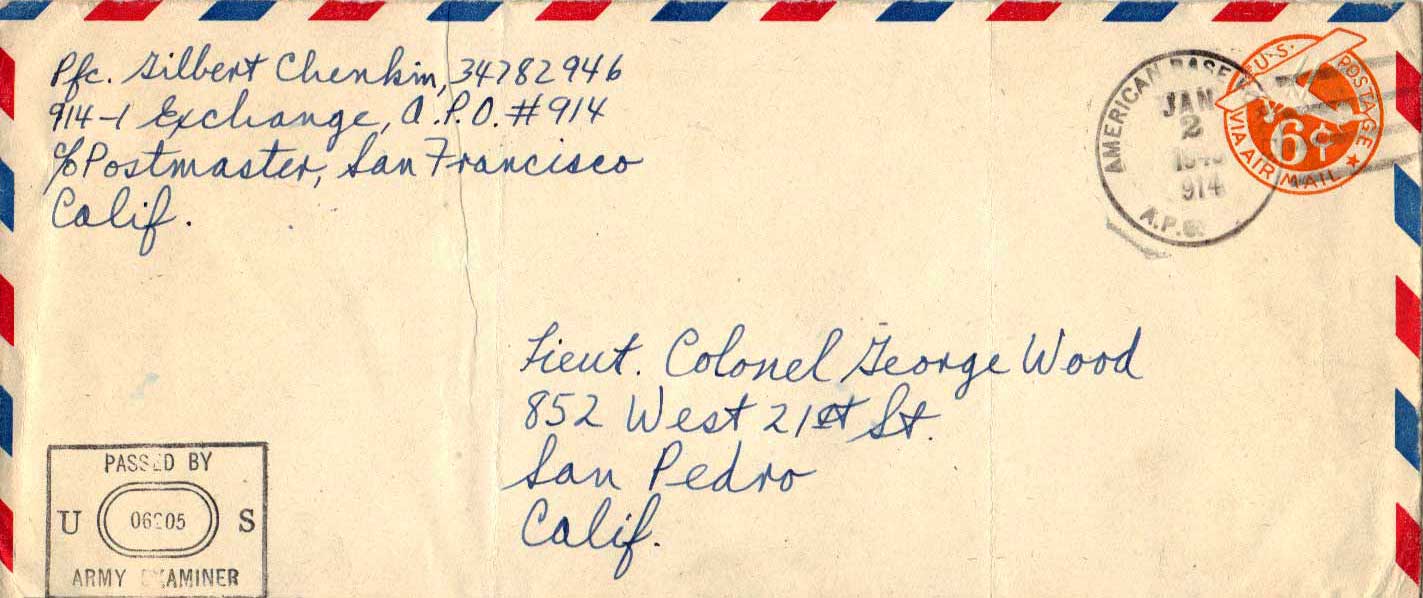 Pfc. Gilbert Chenkin, 34782946
914-1 Exchange, A.P.O. #914
c/o Postmaster, San Francisco
Calif.
AMERICAN BASE
JAN
2
914
A.P.O.
U.S. POSTAGE
6¢
VIA AIR MAIL
Lieut. Colonel George Wood
852 West 21st St.
San Pedro
Calif.
PASSED BY
U S
ARMY EXAMINER